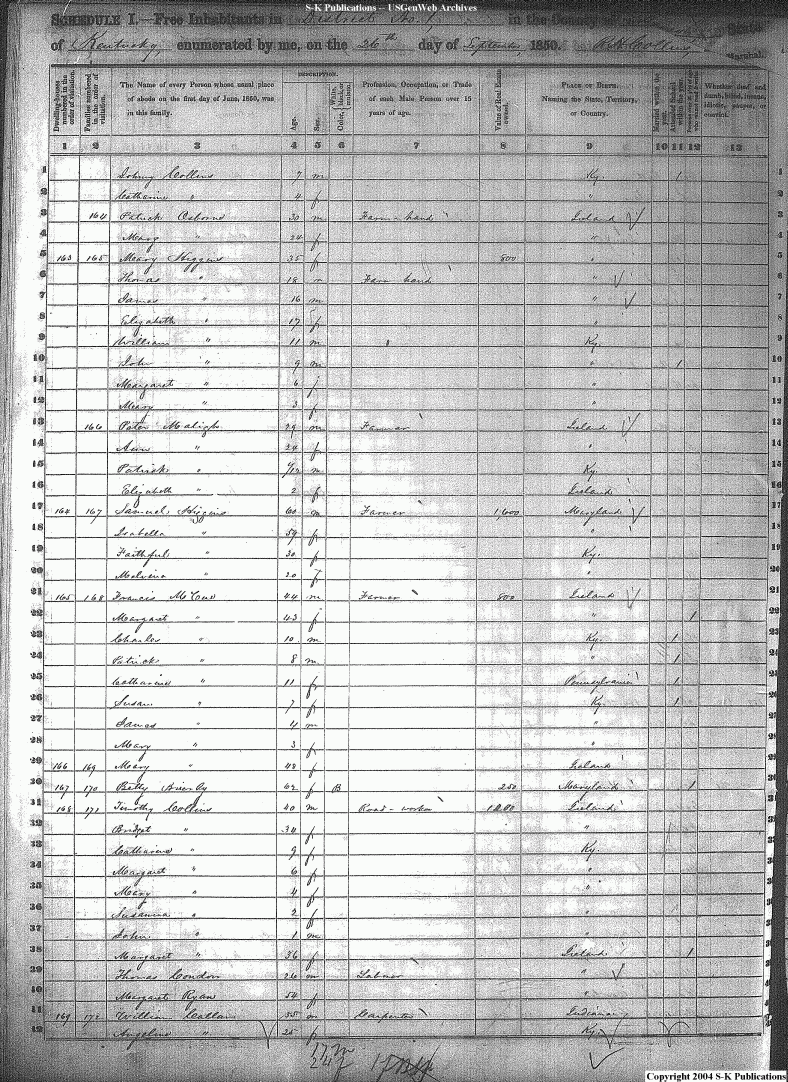 S-K Publications – USGenWeb Archives
SCHEDULE I.—Free Inhabitants in District No. 1, in the County of State
of Kentucky enumerated by me, on the 26th day of September, 1850. Marshal.
DESCRIPTION.
Dwelling-houses numbered in the order of visitation. Families numbered in the order of visitation. The Name of every Person whose usual place of abode on the first day of June, 1850, was in this family. Age. Sex. Color, White, black, or mulatto. Profession, Occupation, or Trade of each Male Person over 15 years of age. Value of Real Estate owned. PLACE OF BIRTH. Naming the State, Territory, or Country. Married within the year. Attended School within the year. Whether deaf and dumb, blind, insane, idiotic, pauper, or convict.
1 2 3 4 5 6 7 8 9 10 11 12 13
1 Collins 7 m Ky. 1
2 Catharine " 4 f "
3 164 Patrick Osborne 30 m Farm hand Ireland
4 Mary " 24 f "
5 163 165 Mary Higgins 35 f 800 "
6 Thomas " 18 m Farm hand "
7 James " 16 m "
8 Elizabeth " 17 f "
9 William " 11 m Ky.
10 John " 9 m " 1
11 Margaret " 6 f "
12 Mary " 3 f "
13 166 Peter 29 m Farmer Ireland
14 Ann " 24 f "
15 Patrick " m Ky.
16 Elizabeth " 2 f Ireland
17 164 167 Samuel Higgins 60 m Farmer 1,600 Maryland
18 Isabella " 59 f "
19 Faithful " 30 f Ky.
20 Malvina " 20 f "
21 165 168 Francis McCue 44 m Farmer 800 Ireland
22 Margaret " 43 f " 1
23 Charles " 10 m Ky. 1
24 Patrick " 8 m " 1
25 Catharine " 11 f Pennsylvania 1
26 Susan " 7 f Ky. 1
27 James " 4 m "
28 Mary " 3 f "
29 166 169 Mary " 48 f Ireland
30 167 170 Betty 62 f B 250 Maryland 1
31 168 171 Timothy Collins 40 m Road-worker Ireland
32 Bridget " 34 f "
33 Catharine " 9 f Ky.
34 Margaret " 6 f "
35 Mary " 4 f "
36 Susanna " 2 f "
37 John " 1 m "
38 Margaret " 36 f Ireland 1
39 Thomas Condon 26 m Laborer "
40 Margaret Ryan 54 f "
41 169 172 William 35 m Carpenter Indiana
42 Angeline " 25 f Ky.
17 m
24 f
Copyright 2004 S-K Publications